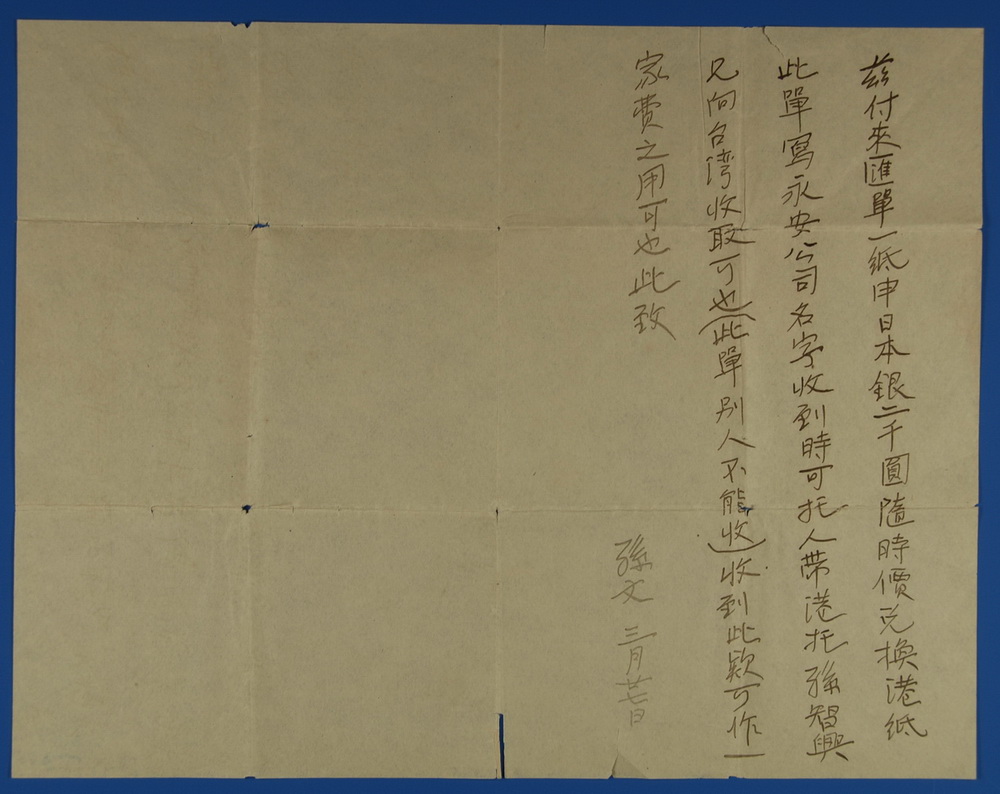 茲付來匯單一紙申日本銀二千圓隨時價兌換港紙
此單寫永安公司名字收到時可托人帶港托孫智興
兄向台湾收取可也(此單別人不能收)收到此款可作一
家费之用可也此致
孫文 三月廿七日